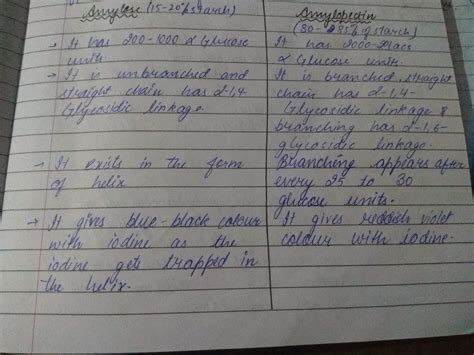 Amylose (15-20% starch)
→ It has 200-1000 α Glucose
units
→ It is unbranched and
straight chain has α-1,4-
Glycosidic linkage.
→ It exists in the form
of helix
→ It gives blue-black colour
with iodine as the
iodine gets trapped in
the helix.
Amylopectin
(80-85% of starch)
It has 2000-
α Glucose unit.
It is branched, straight
chain has α-1,4-
Glycosidic linkage &
branching has α-1,6-
glycosidic linkage.
Branching appears after
every 25 to 30
glucose units.
It gives reddish violet
colour with iodine.